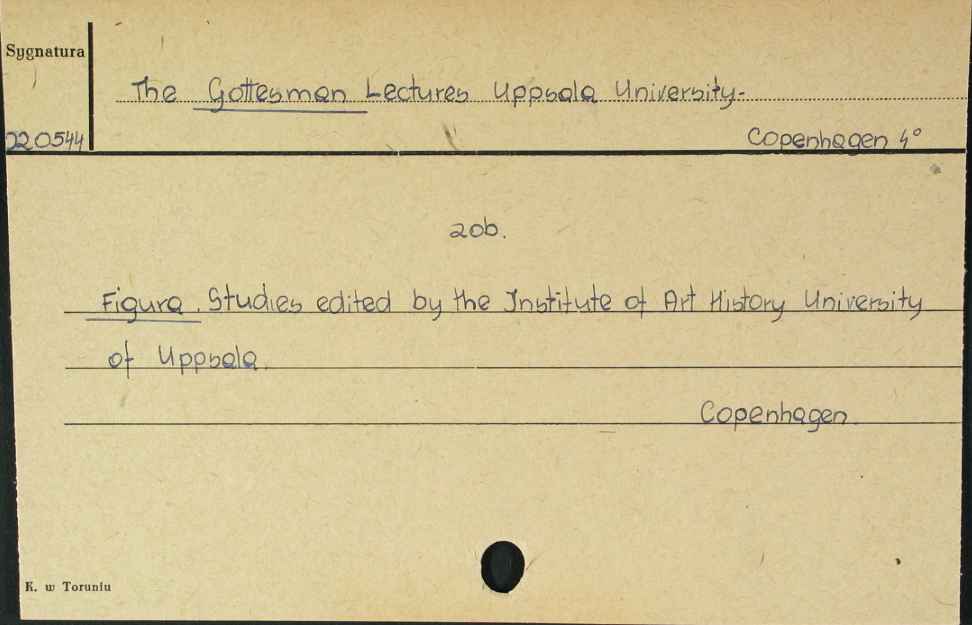 Sygnatura
The Gottesman Lectures Uppsala University-
020544
Copenhagen 4°
zob.
Figura. Studies edited by the Institute of Art History University
of Uppsala.
Copenhagen.
K. w Toruniu